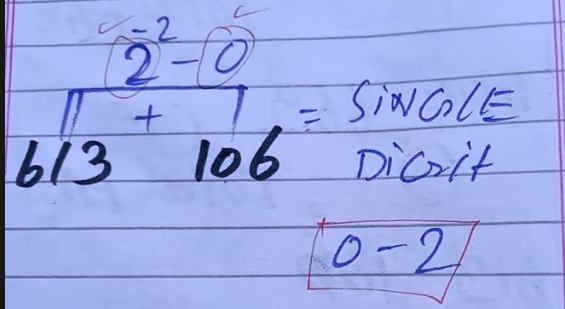 -2
2 - 0
+
613 106 = SiNGlE
DiGit
0-2